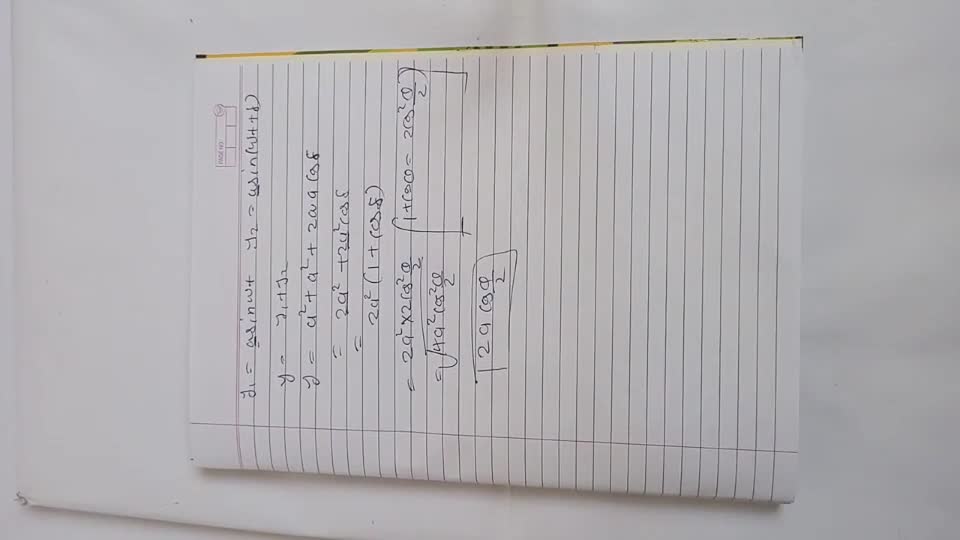 PAGE NO
y₁ = a sin wt y₂ = a sin (wt + δ)
y = y₁ + y₂
y = a² + a² + 2a a cos δ
= 2a² + 2a² cos δ
= 2a² (1 + cos δ)
= 2a² × 2 cos² θ/2 (1 + cos θ = 2 cos² θ/2)
= √4a² cos² θ/2
2a cos θ/2